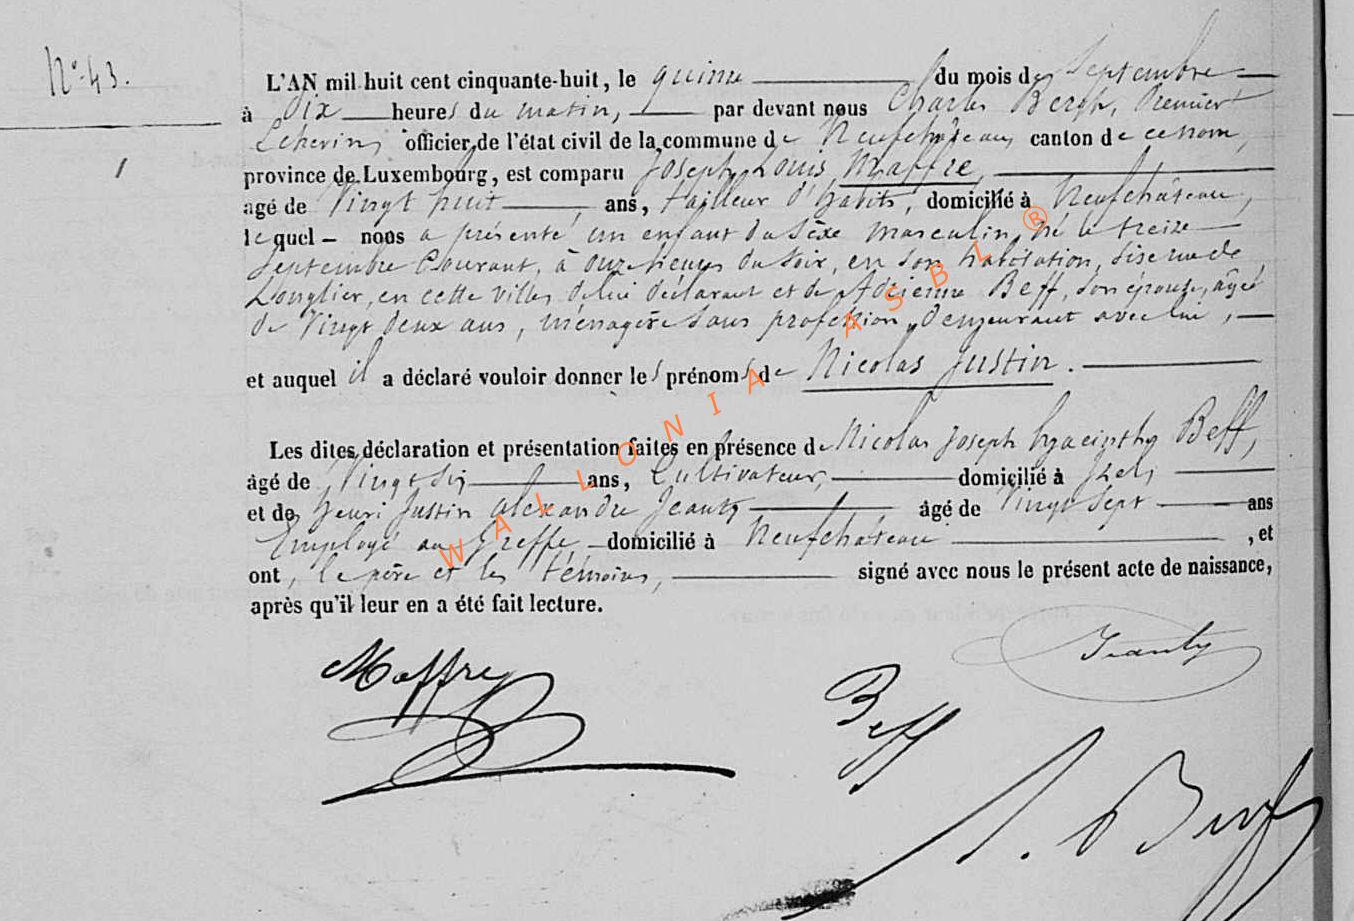 N° 43.
L'AN mil huit cent cinquante-huit, le quinze du mois de Septembre
à Dix heures du matin, par devant nous Charles Bergh, Premier
Echevin, officier de l'état civil de la commune de Neufchâteau, canton de ce nom,
province de Luxembourg, est comparu Joseph Louis Maffre,
agé de Vingt huit ans, tailleur d'habits, domicilié à Neufchâteau,
lequel nous a présenté un enfant du sèxe masculin, né le treize
Septembre Courant, à onze heures du soir, en son habitation, sise rue de
Longlier, en cette ville, de lui déclarant et de Adrienne Beff, son épouse, âgée
de Vingt deux ans, ménagère sans profession, demeurant avec lui,
et auquel il a déclaré vouloir donner les prénoms de Nicolas Justin.
Les dites déclaration et présentation faites en présence de Nicolas Joseph hyacinthe Beff,
âgé de Vingt six ans, Cultivateur, domicilié à
et de henri Justin alexandre Jeanty âgé de Vingt Sept ans
Employé au Greffe, domicilié à Neufchâteau , et
ont, le père et les témoins, signé avec nous le présent acte de naissance,
après qu'il leur en a été fait lecture.
Jeanty
Maffre
Beff
WALLONIA ASBL ®